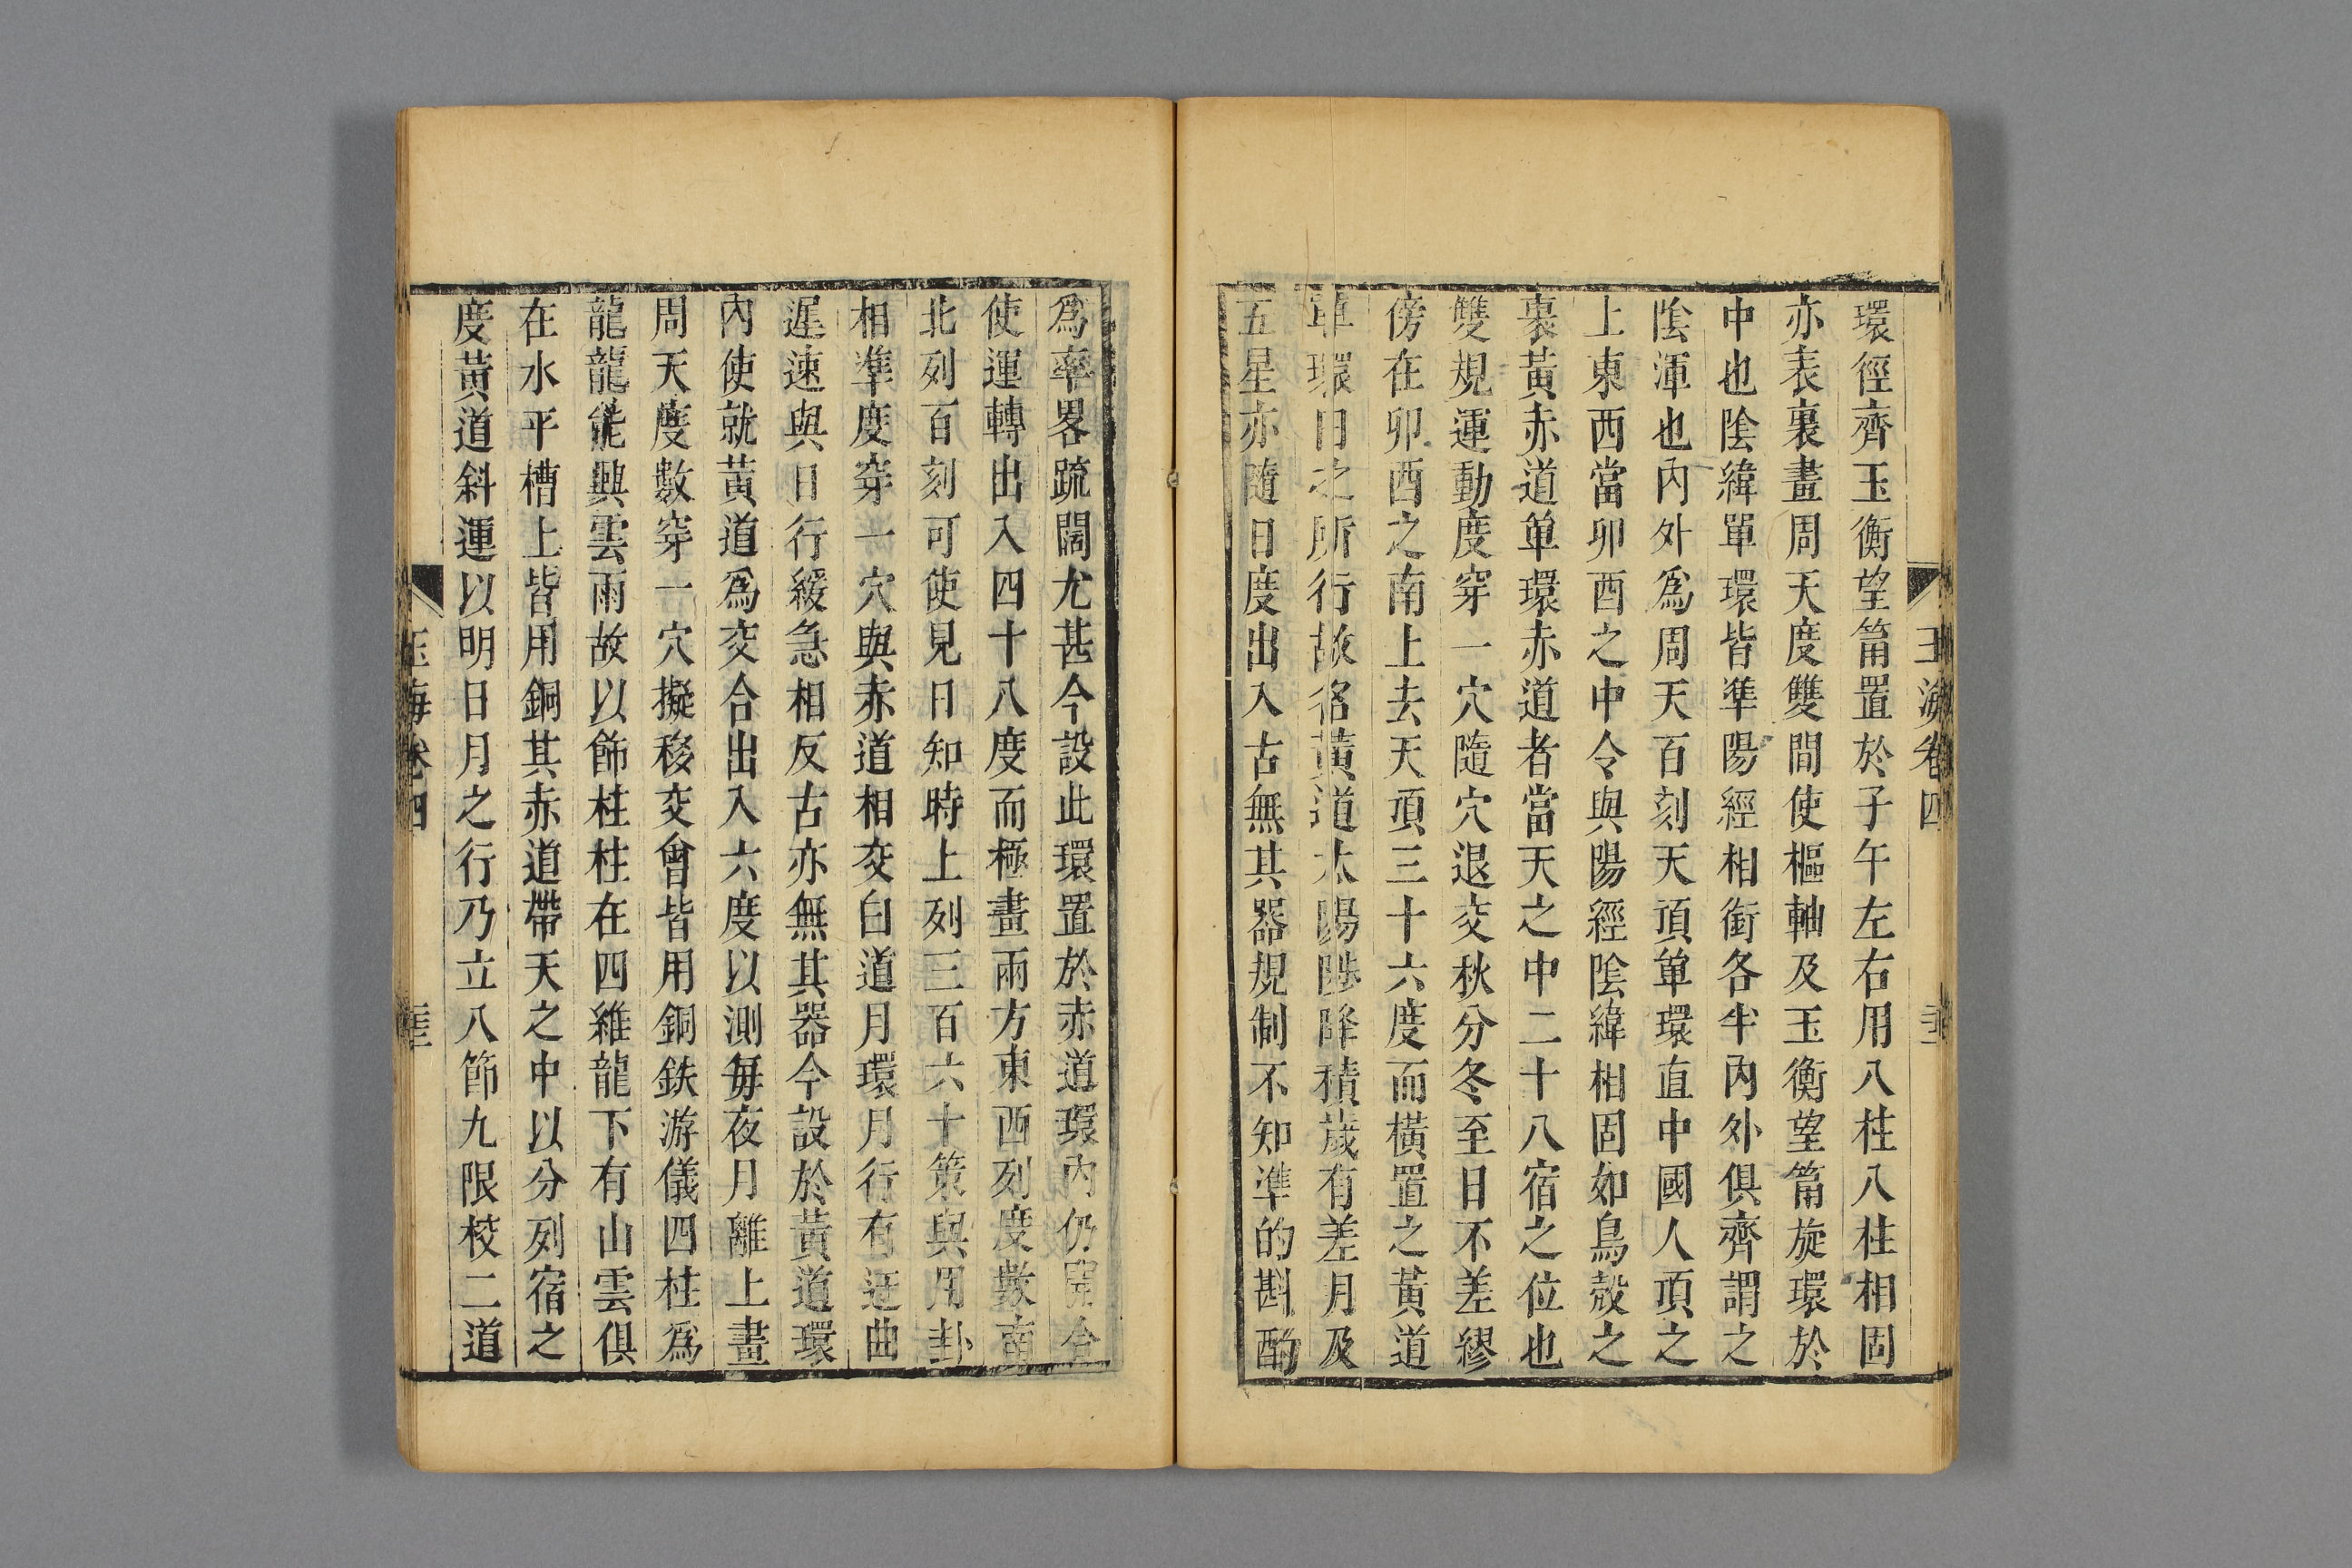 玉海卷四
環徑齊玉衡望筩置於子午左右用八柱八柱相固
亦表裏畫周天度雙間使樞軸及玉衡望筩旋環於
中也陰緯單環皆準陽經相銜各半內外俱齊謂之
陰渾也內外爲周天百刻天頂单環直中國人頂之
上東西當卯酉之中令與陽經陰緯相固如鳥殼之
裏黃赤道单環赤道者當天之中二十八宿之位也
雙規運動度穿一穴隨穴退交秋分冬至日不差繆
傍在卯酉之南上去天頂三十六度而橫置之黃道
单環日之所行故名黃道太陽陟降積歲有差月及
五星亦隨日度出入古無其器規制不知準的斟酌
爲率畧疏闊尤甚今設此環置於赤道環內仍開合
使運轉出入四十八度而極畫兩方東西列度數南
北列百刻可使見日知時上列三百六十策與用卦
相準度穿一穴與赤道相交白道月環月行有迂曲
遲速與日行緩急相反古亦無其器今設於黃道環
內使就黃道爲交合出入六度以測每夜月離上畫
周天度數穿一穴擬移交會皆用銅鉄游儀四柱爲
龍龍能興雲雨故以飾柱柱在四維龍下有山雲俱
在水平槽上皆用銅其赤道帶天之中以分列宿之
度黃道斜運以明日月之行乃立八節九限校二道
玉海卷四